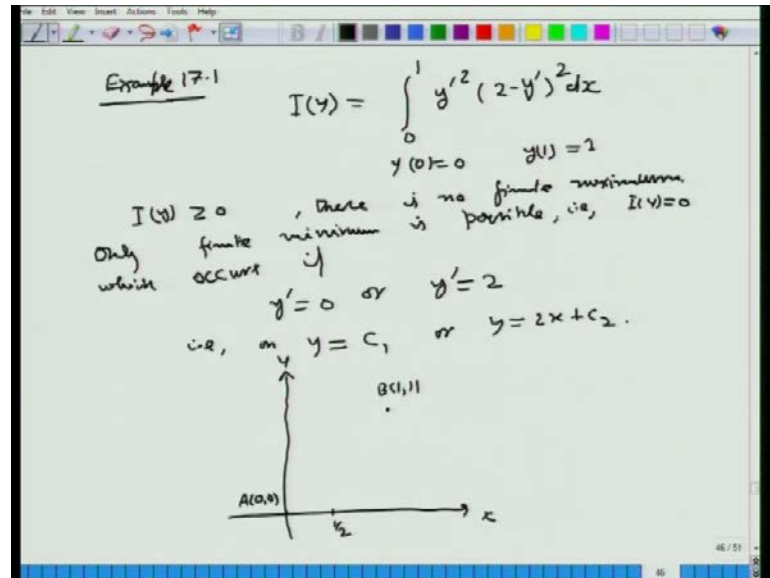 File Edit View Insert Actions Tools Help
Example 17.1
I(y) = ∫₀¹ y'² (2-y')² dx
y(0)=0 y(1)=1
I(y) ≥ 0, there is no finite maximum.
Only finite minimum is possible, i.e, I(y)=0
which occurs if
y'=0 or y'=2
i.e, on y = C₁ or y=2x+C₂.
y
B(1,1)
A(0,0)
1/2
x
46/51
46